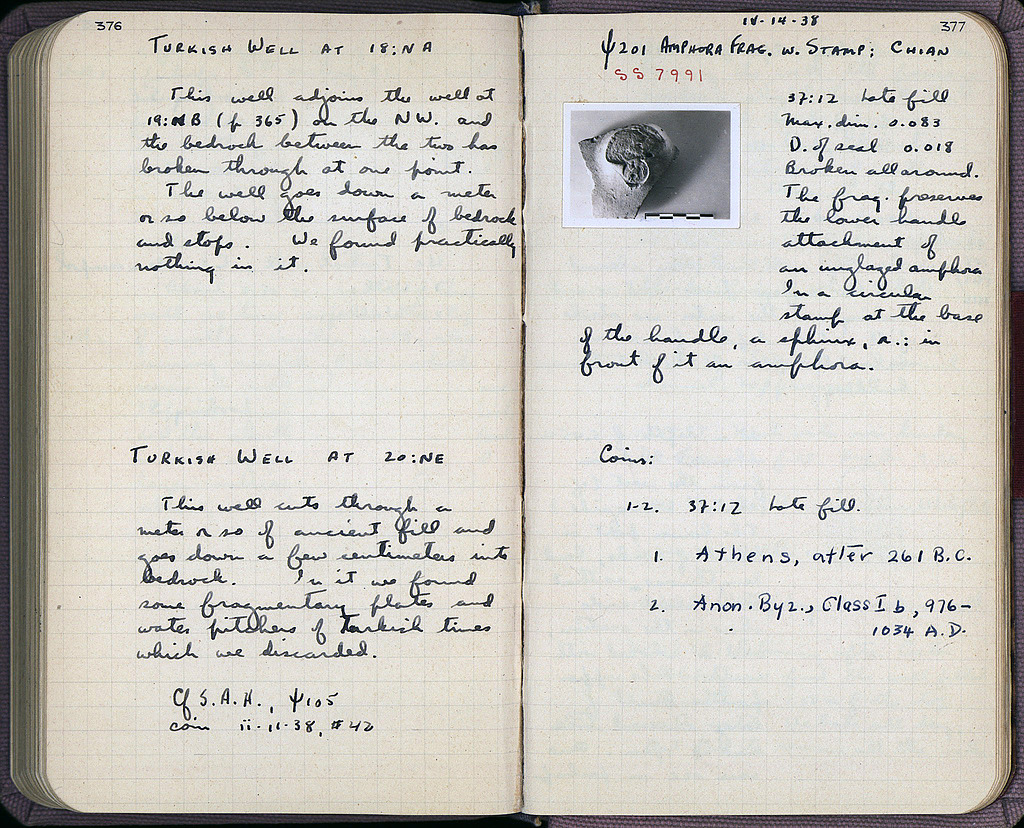 376
TURKISH WELL AT 18:NA
This well adjoins the well at
19:NB (p 365) on the NW. and
the bedrock between the two has
broken through at one point.
The well goes down a meter
or so below the surface of bedrock
and stops. We found practically
nothing in it.
TURKISH WELL AT 20:NE
This well cuts through a
meter or so of ancient fill and
goes down a few centimeters into
bedrock. In it we found
some fragmentary plates and
water pitchers of Turkish times
which we discarded.
Cf S.A.H., ψ105
coin ii-11-38, #42
-14-38
377
ψ201 AMPHORA FRAG. W. STAMP; CHIAN
SS 7991
37:12 Late fill
Max. dim. 0.083
D. of seal 0.018
Broken all around.
The frag. preserves
the lower handle
attachment of
an unglazed amphora
In a circular
stamp at the base
of the handle, a sphinx, r.: in
front of it an amphora.
Coins:
1-2. 37:12 Late fill.
1. Athens, after 261 B.C.
2. Anon. Byz., Class I b, 976-
1034 A.D.